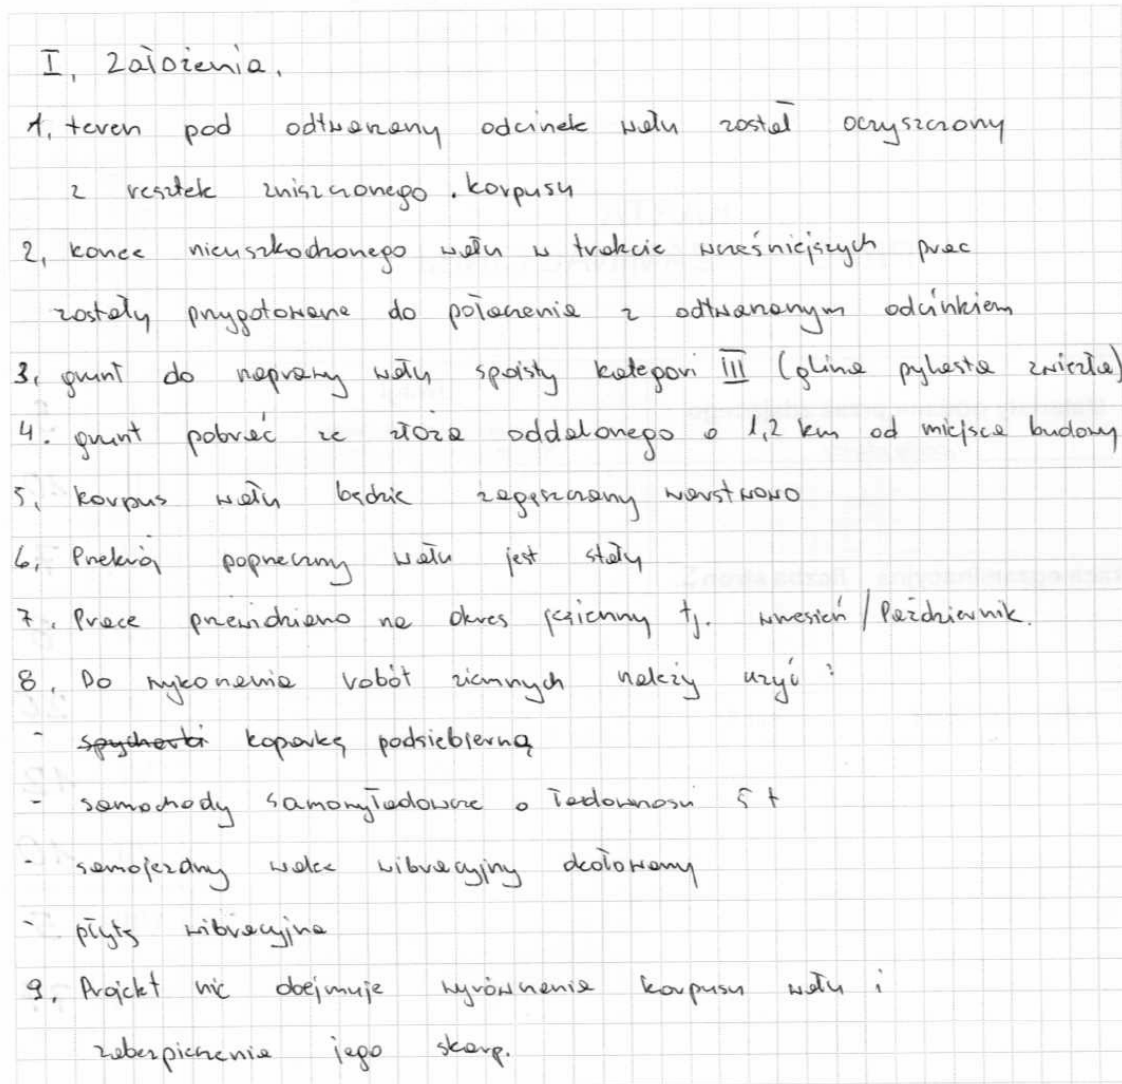 I, Założenia.
1, teren pod odtwarzany odcinek wału został oczyszczony
z resztek zniszczonego . korpusu
2, końce nieuszkodzonego wału w trakcie wcześniejszych prac
zostały przygotowane do połączenia z odtwarzanym odcinkiem
3, grunt do naprawy wału spoisty kategori III (glina pylasta zwięzła)
4. grunt pobrać ze złoża oddalonego o 1,2 km od miejsca budowy
5, korpus wału będzie zagęszczany warstwowo
6, Przekrój poprzeczny wału jest stały
7, Prace przewidziano na okres jesienny tj. wrzesień / Październik.
8, Do wykonania robót ziemnych należy użyć :
- spycharki koparkę podsiebierną
- samochody samowyładowcze o ładowności 5 t
- samojezdny walec wibracyjny okołowany
- płytę wibracyjna
9, Projekt nie obejmuje wyrównania korpusu wału i
zabezpieczenia jego skarp.